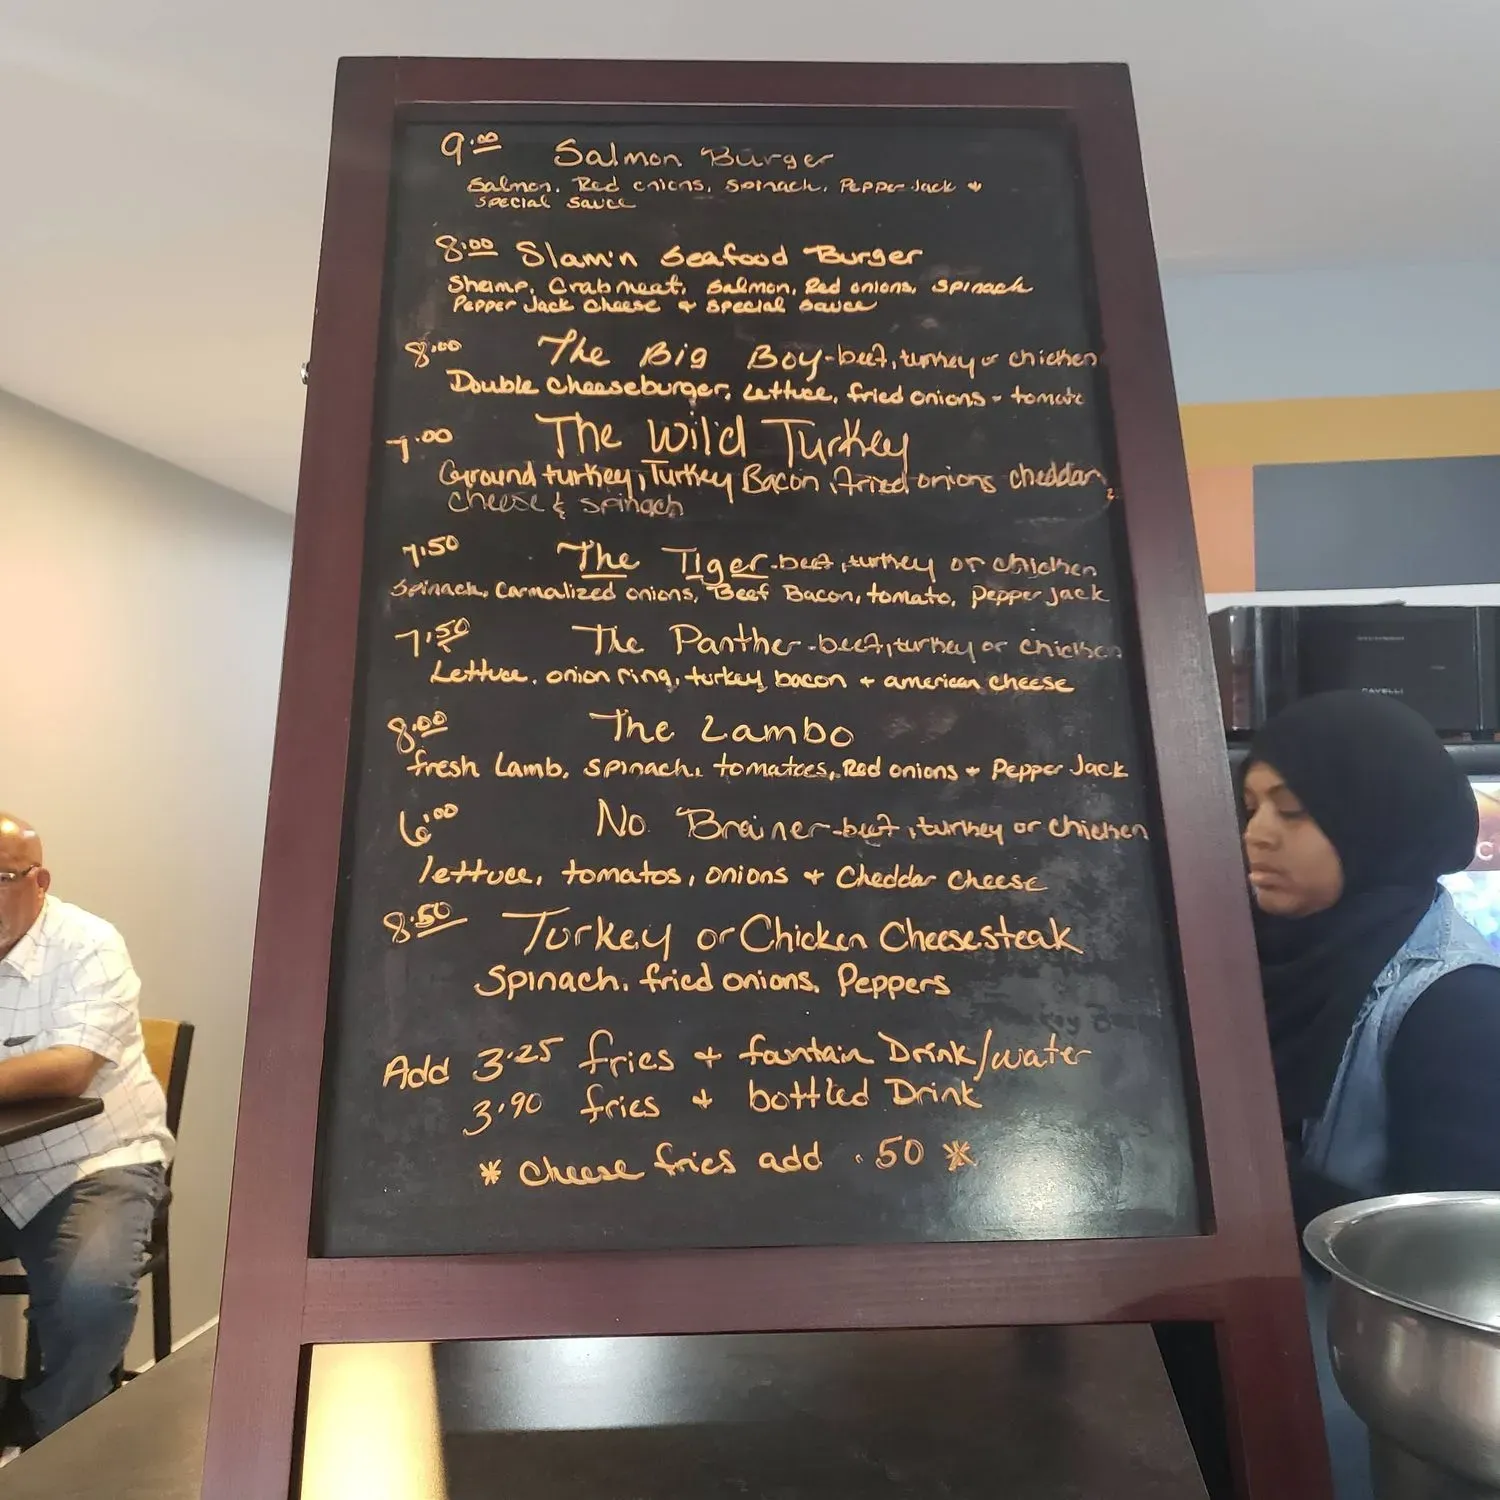 9.00 Salmon Burger
Salmon, Red onions, Spinach, Pepper Jack &
Special Sauce
8.00 Slam'n Seafood Burger
Shrimp, Crabmeat, Salmon, Red onions, Spinach
Pepper Jack Cheese & Special Sauce
8.00 The Big Boy-beef, turkey or chicken
Double Cheeseburger, Lettuce, fried onions - tomato
7.00 The Wild Turkey
Ground turkey, Turkey Bacon, fried onions cheddar,
cheese & spinach
7.50 The Tiger-beef, turkey or chicken
Spinach, Carmalized onions, Beef Bacon, tomato, Pepper Jack
7.50 The Panther-beef, turkey or chicken
Lettuce, onion ring, turkey bacon + american cheese
8.00 The Lambo
fresh Lamb, Spinach, tomatoes, Red onions + Pepper Jack
6.00 No Brainer-beef, turkey or chicken
lettuce, tomatos, onions + Cheddar Cheese
8.50 Turkey or Chicken Cheesesteak
Spinach, fried onions, Peppers
Add 3.25 fries + fountain Drink/water
3.90 fries + bottled Drink
* Cheese fries add .50 *